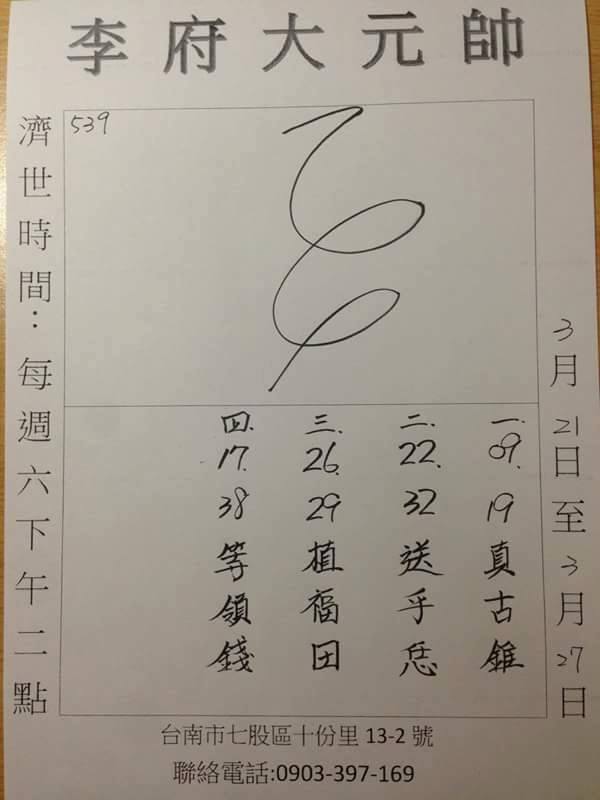 李府大元帥
3月21日至3月27日
539
一.09.19真古錐
二.22.32送乎恁
三.26.29植福田
四.17.38等領錢
濟世時間：每週六下午二點
台南市七股區十份里13-2號
聯絡電話:0903-397-169